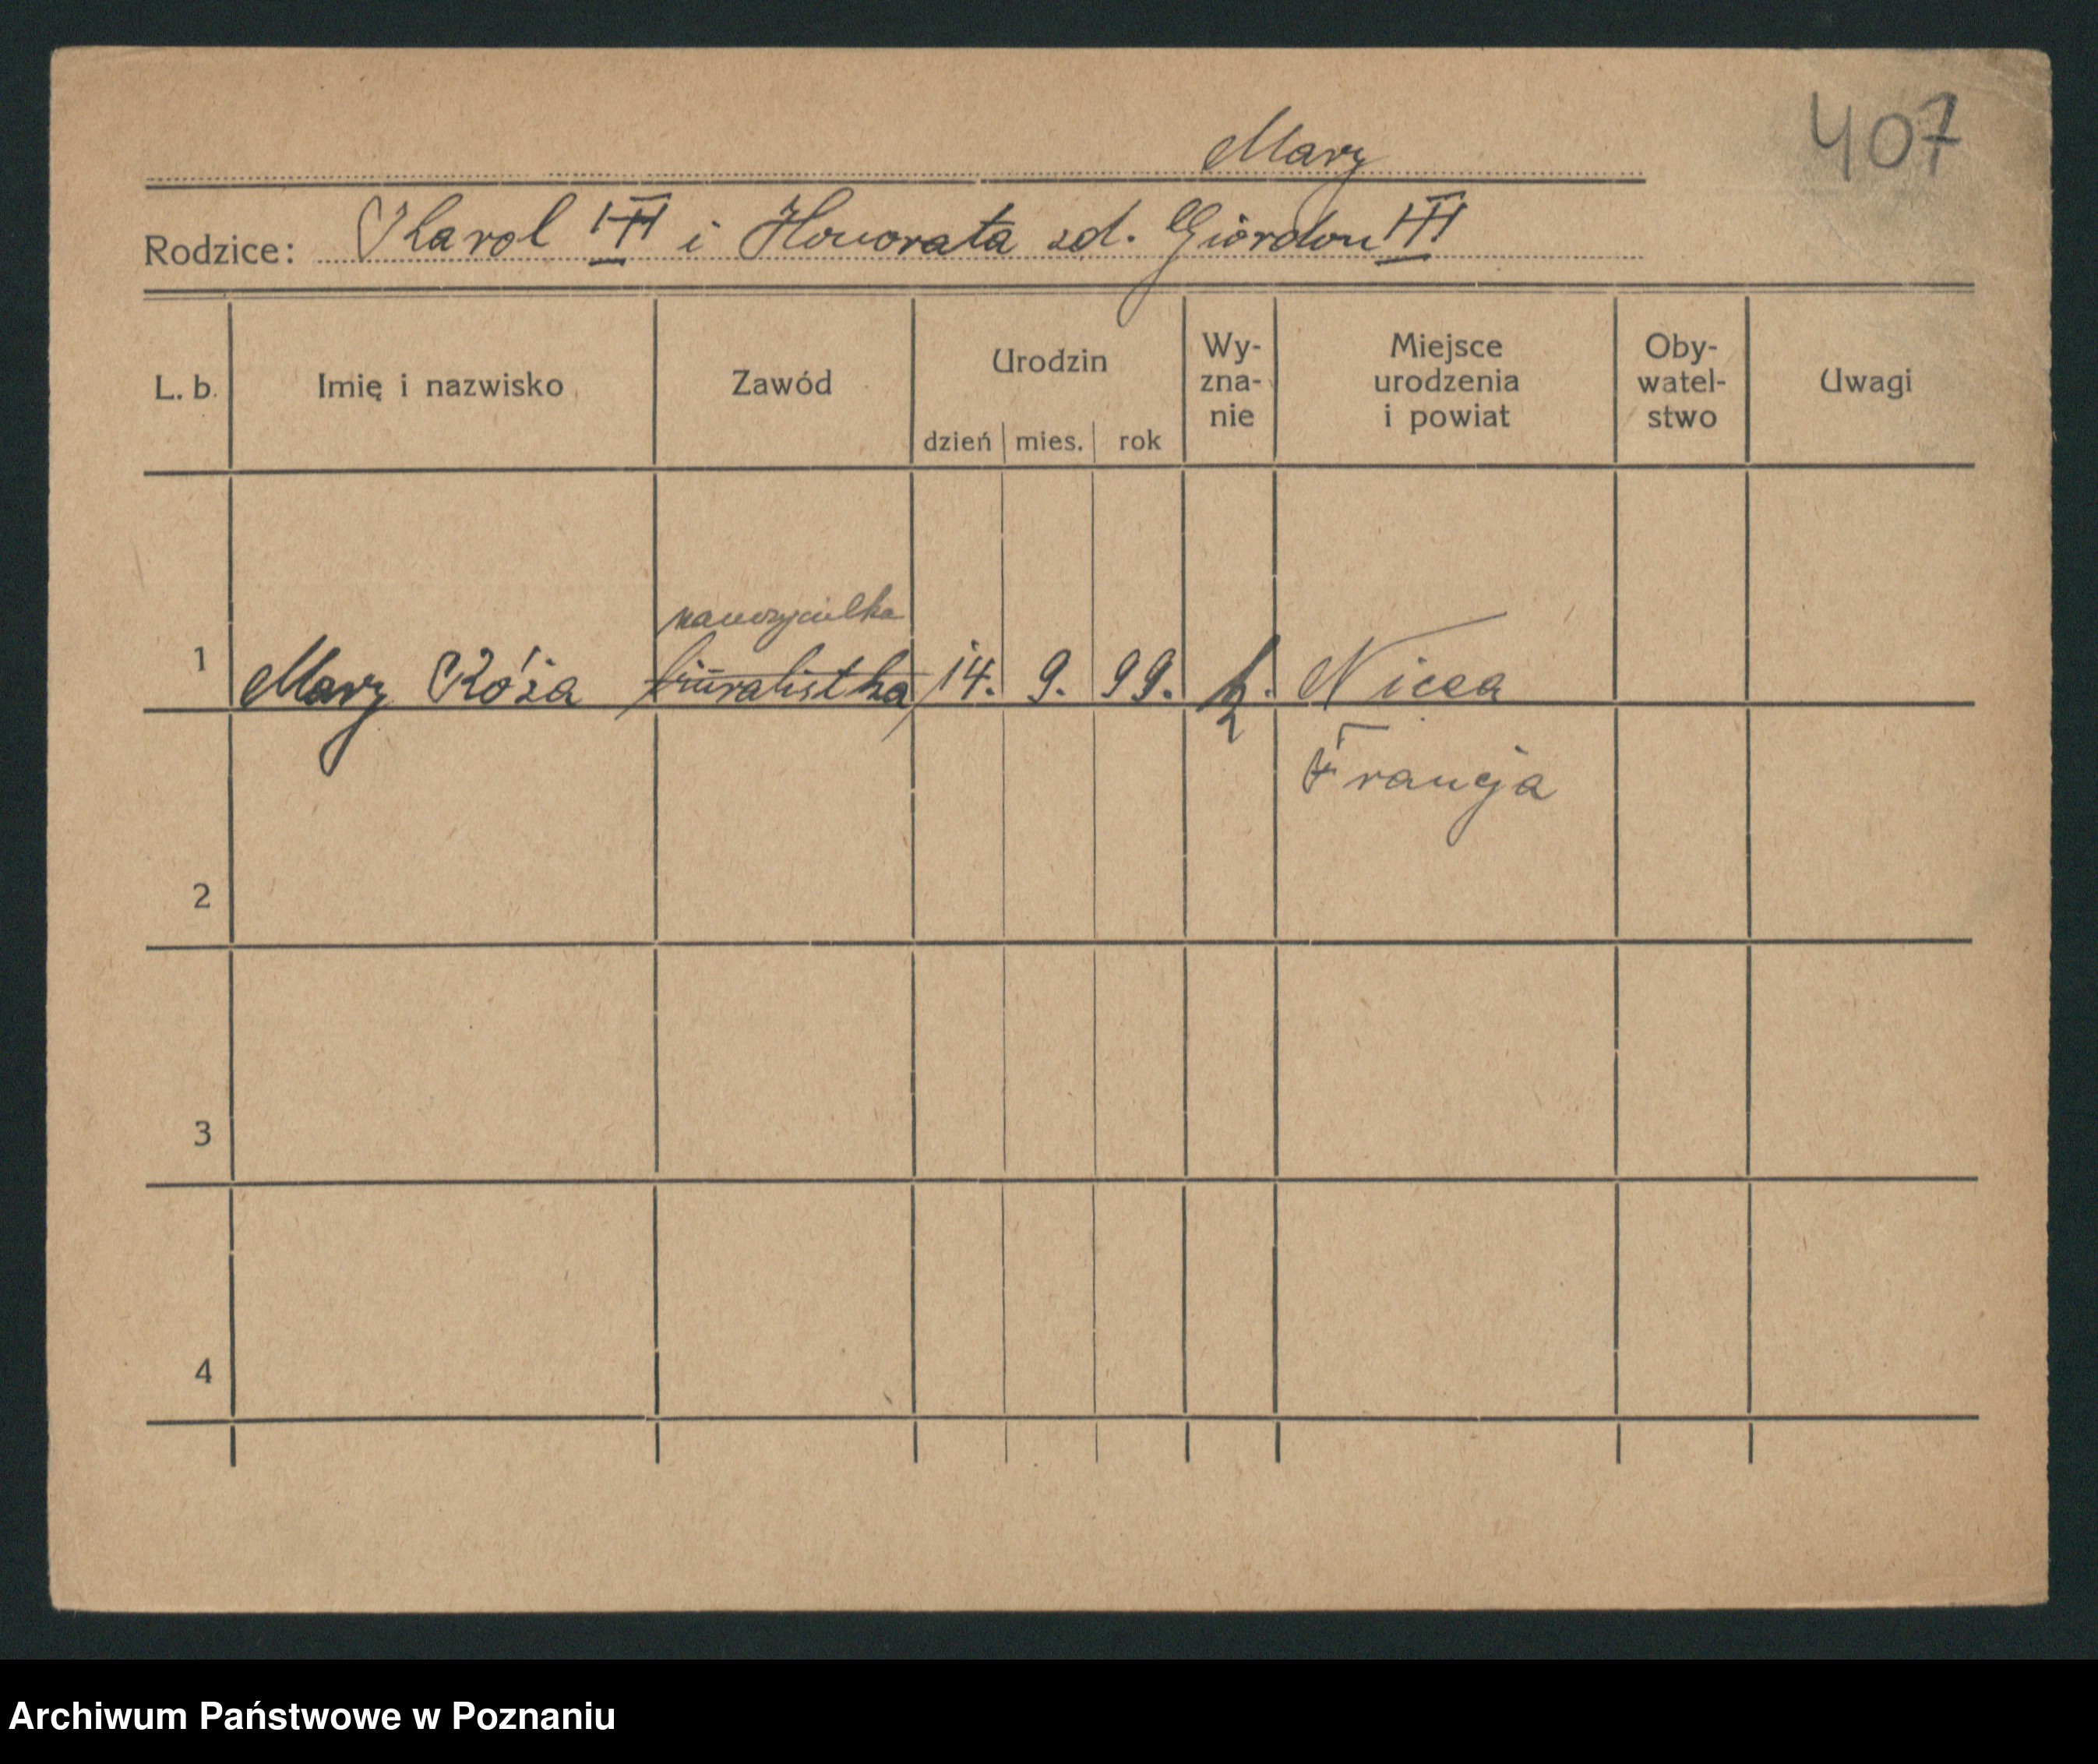 407
Mary
Rodzice: Karol i Honorata zd. Giordon
L. b. Imię i nazwisko Zawód Urodzin dzień mies. rok Wy-zna-nie Miejsce urodzenia i powiat Oby-watel-stwo Uwagi
nauczycielka
1 Mary Róża biuralistka 14. 9. 99. k. Nicea
Francja
2
3
4
Archiwum Państwowe w Poznaniu